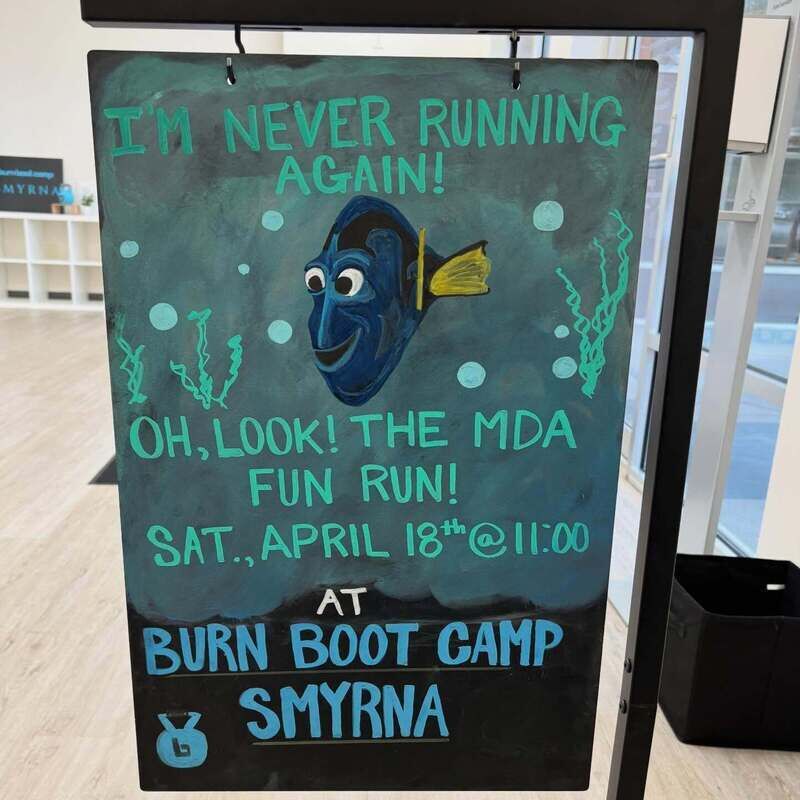 I'M NEVER RUNNING
AGAIN!
OH, LOOK! THE MDA
FUN RUN!
SAT., APRIL 18th @ 11:00
AT
BURN BOOT CAMP
SMYRNA
burn boot camp
SMYRNA